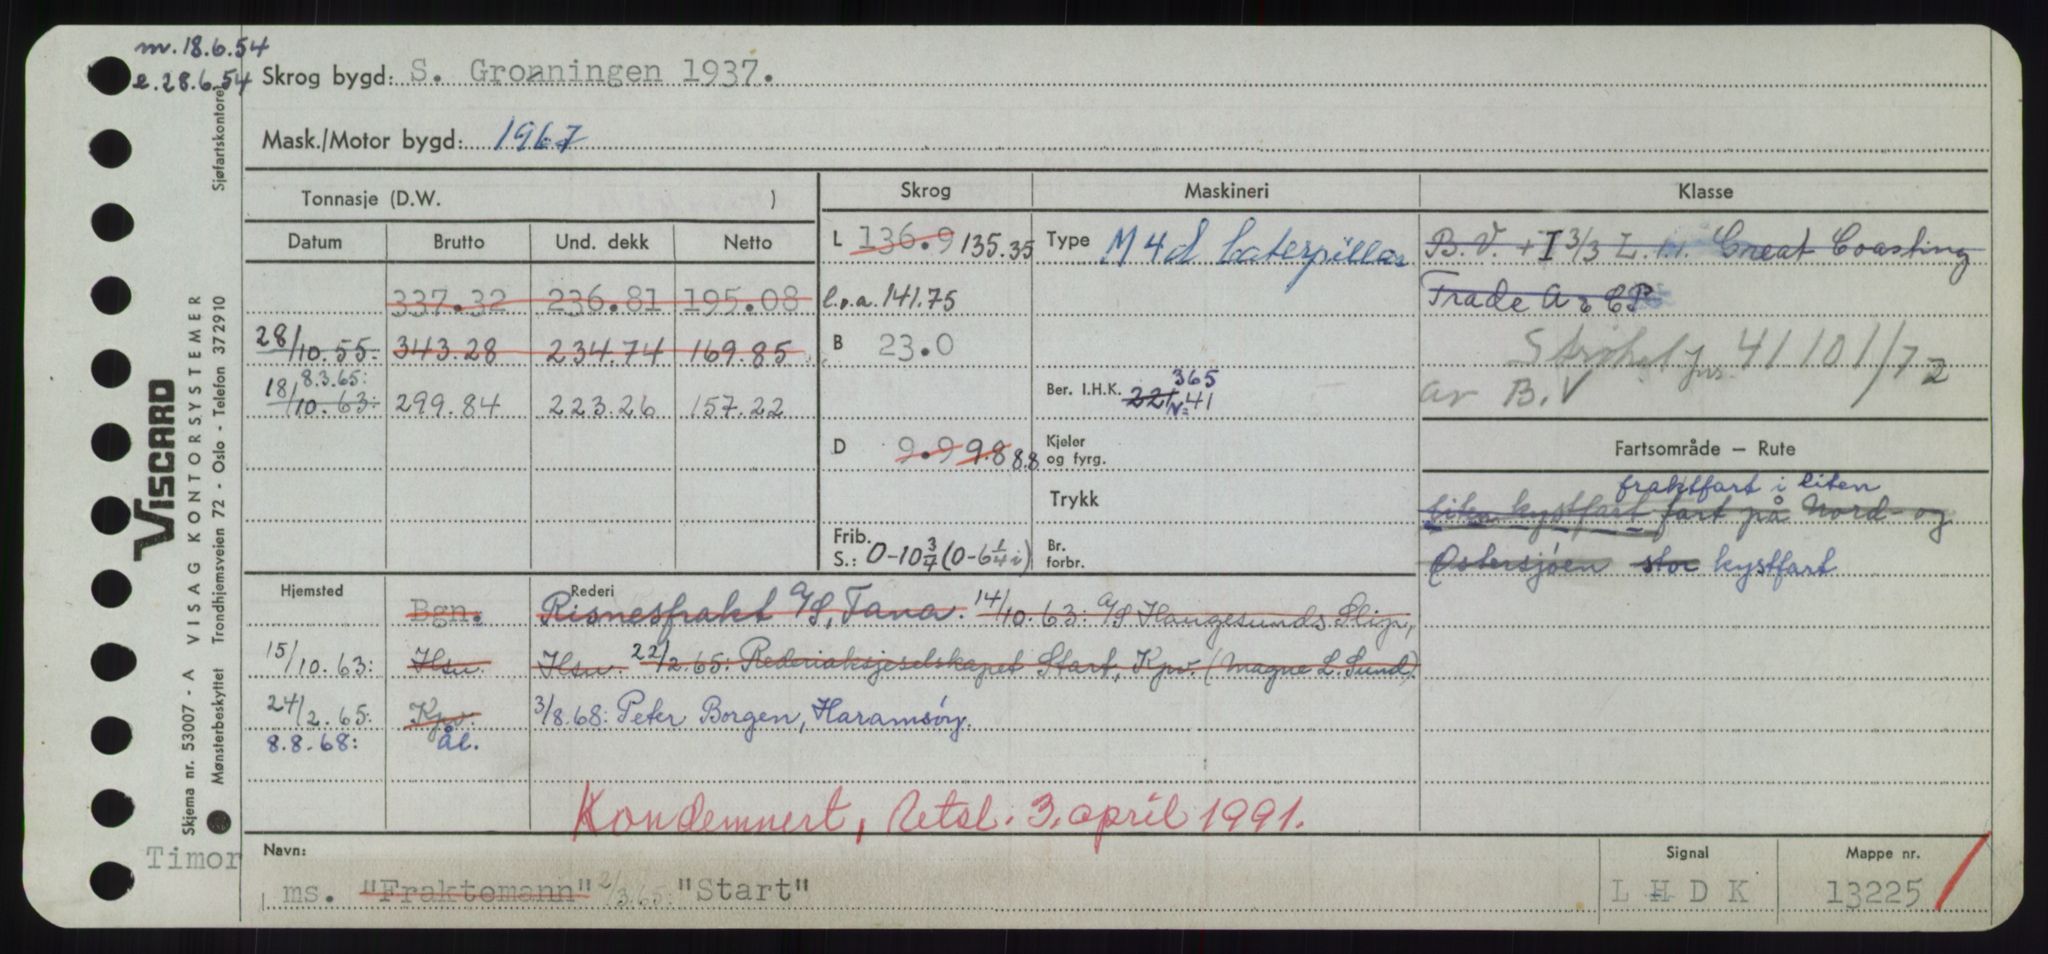 m. 18.6.54
e. 28.6.54
Skrog bygd: S. Gronningen 1937.
Mask./Motor bygd: 1967
Tonnasje (D.W. )
Skrog
Maskineri
Klasse
Datum Brutto Und. dekk Netto
337.32 236.81 195.08
28/10.55: 343.28 234.74 169.85
8.3.65:
18/10.63: 299.84 223.26 157.22
L 136.9 135.35
l.o.a. 141.75
B 23.0
D 9.9 9.8 8.8
Frib. S.: 0-10 3/4 (0-6 1/4 i)
Type M 4 d Caterpillar
Ber. I.H.K. 221 365
N= 41
Kjeler og fyrg.
Trykk
Br. forbr.
B.V. + I 3/3 L.1.1. Great Coasting
Trade A & CP
Strøket jnr. 41101/72
av B.V
Fartsområde — Rute
fraktfart i liten
kystfart fart på Nord- og
Østersjøen stor kystfart
Hjemsted
Rederi
Bgn. Risnesfrakt A/S, Tana. 14/10.63: A/S Haugesunds Slip,
15/10.63: Hsn. Hsn. 22/2.65: Rederiaksjeselskapet Start, Kpv. (Magne L. Sund).
24/2.65: Kpv. 3/8.68: Peter Borgen, Haramsøy.
8.8.68: ål.
Kondemnert, Uetsl. 3. april 1991.
Timor
Navn:
ms. "Fraktemann" 2/3.65: "Start"
Signal
L H D K
Mappe nr.
13225
VISCARD
Skjema nr. 53007 - A VISAG KONTORSYSTEMER
Mønsterbeskyttet Trondhjemsveien 72 - Oslo - Telefon 372910
Sjøfartskontoret